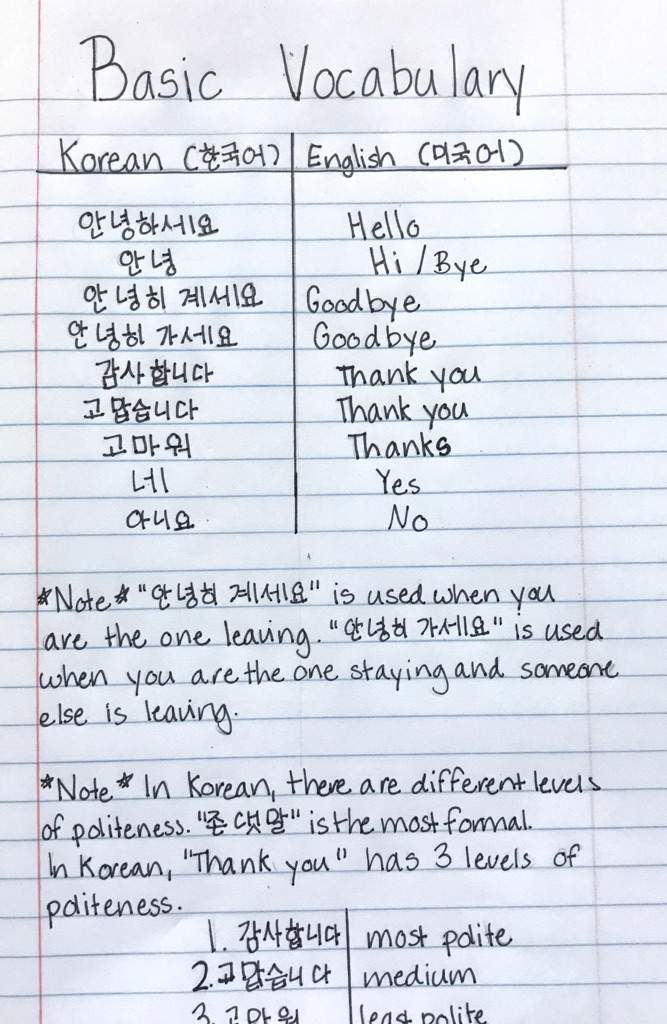 Basic Vocabulary
Korean (한국어) English (미국어)
안녕하세요 Hello
안녕 Hi / Bye
안녕히 계세요 Goodbye
안녕히 가세요 Goodbye
감사합니다 Thank you
고맙습니다 Thank you
고마워 Thanks
네 Yes
아니요 No
*Note* "안녕히 계세요" is used when you
are the one leaving. "안녕히 가세요" is used
when you are the one staying and someone
else is leaving.
*Note* In Korean, there are different levels
of politeness. "존댓말" is the most formal.
In Korean, "Thank you" has 3 levels of
politeness.
1. 감사합니다 most polite
2. 고맙습니다 medium
3. 고마워 least polite